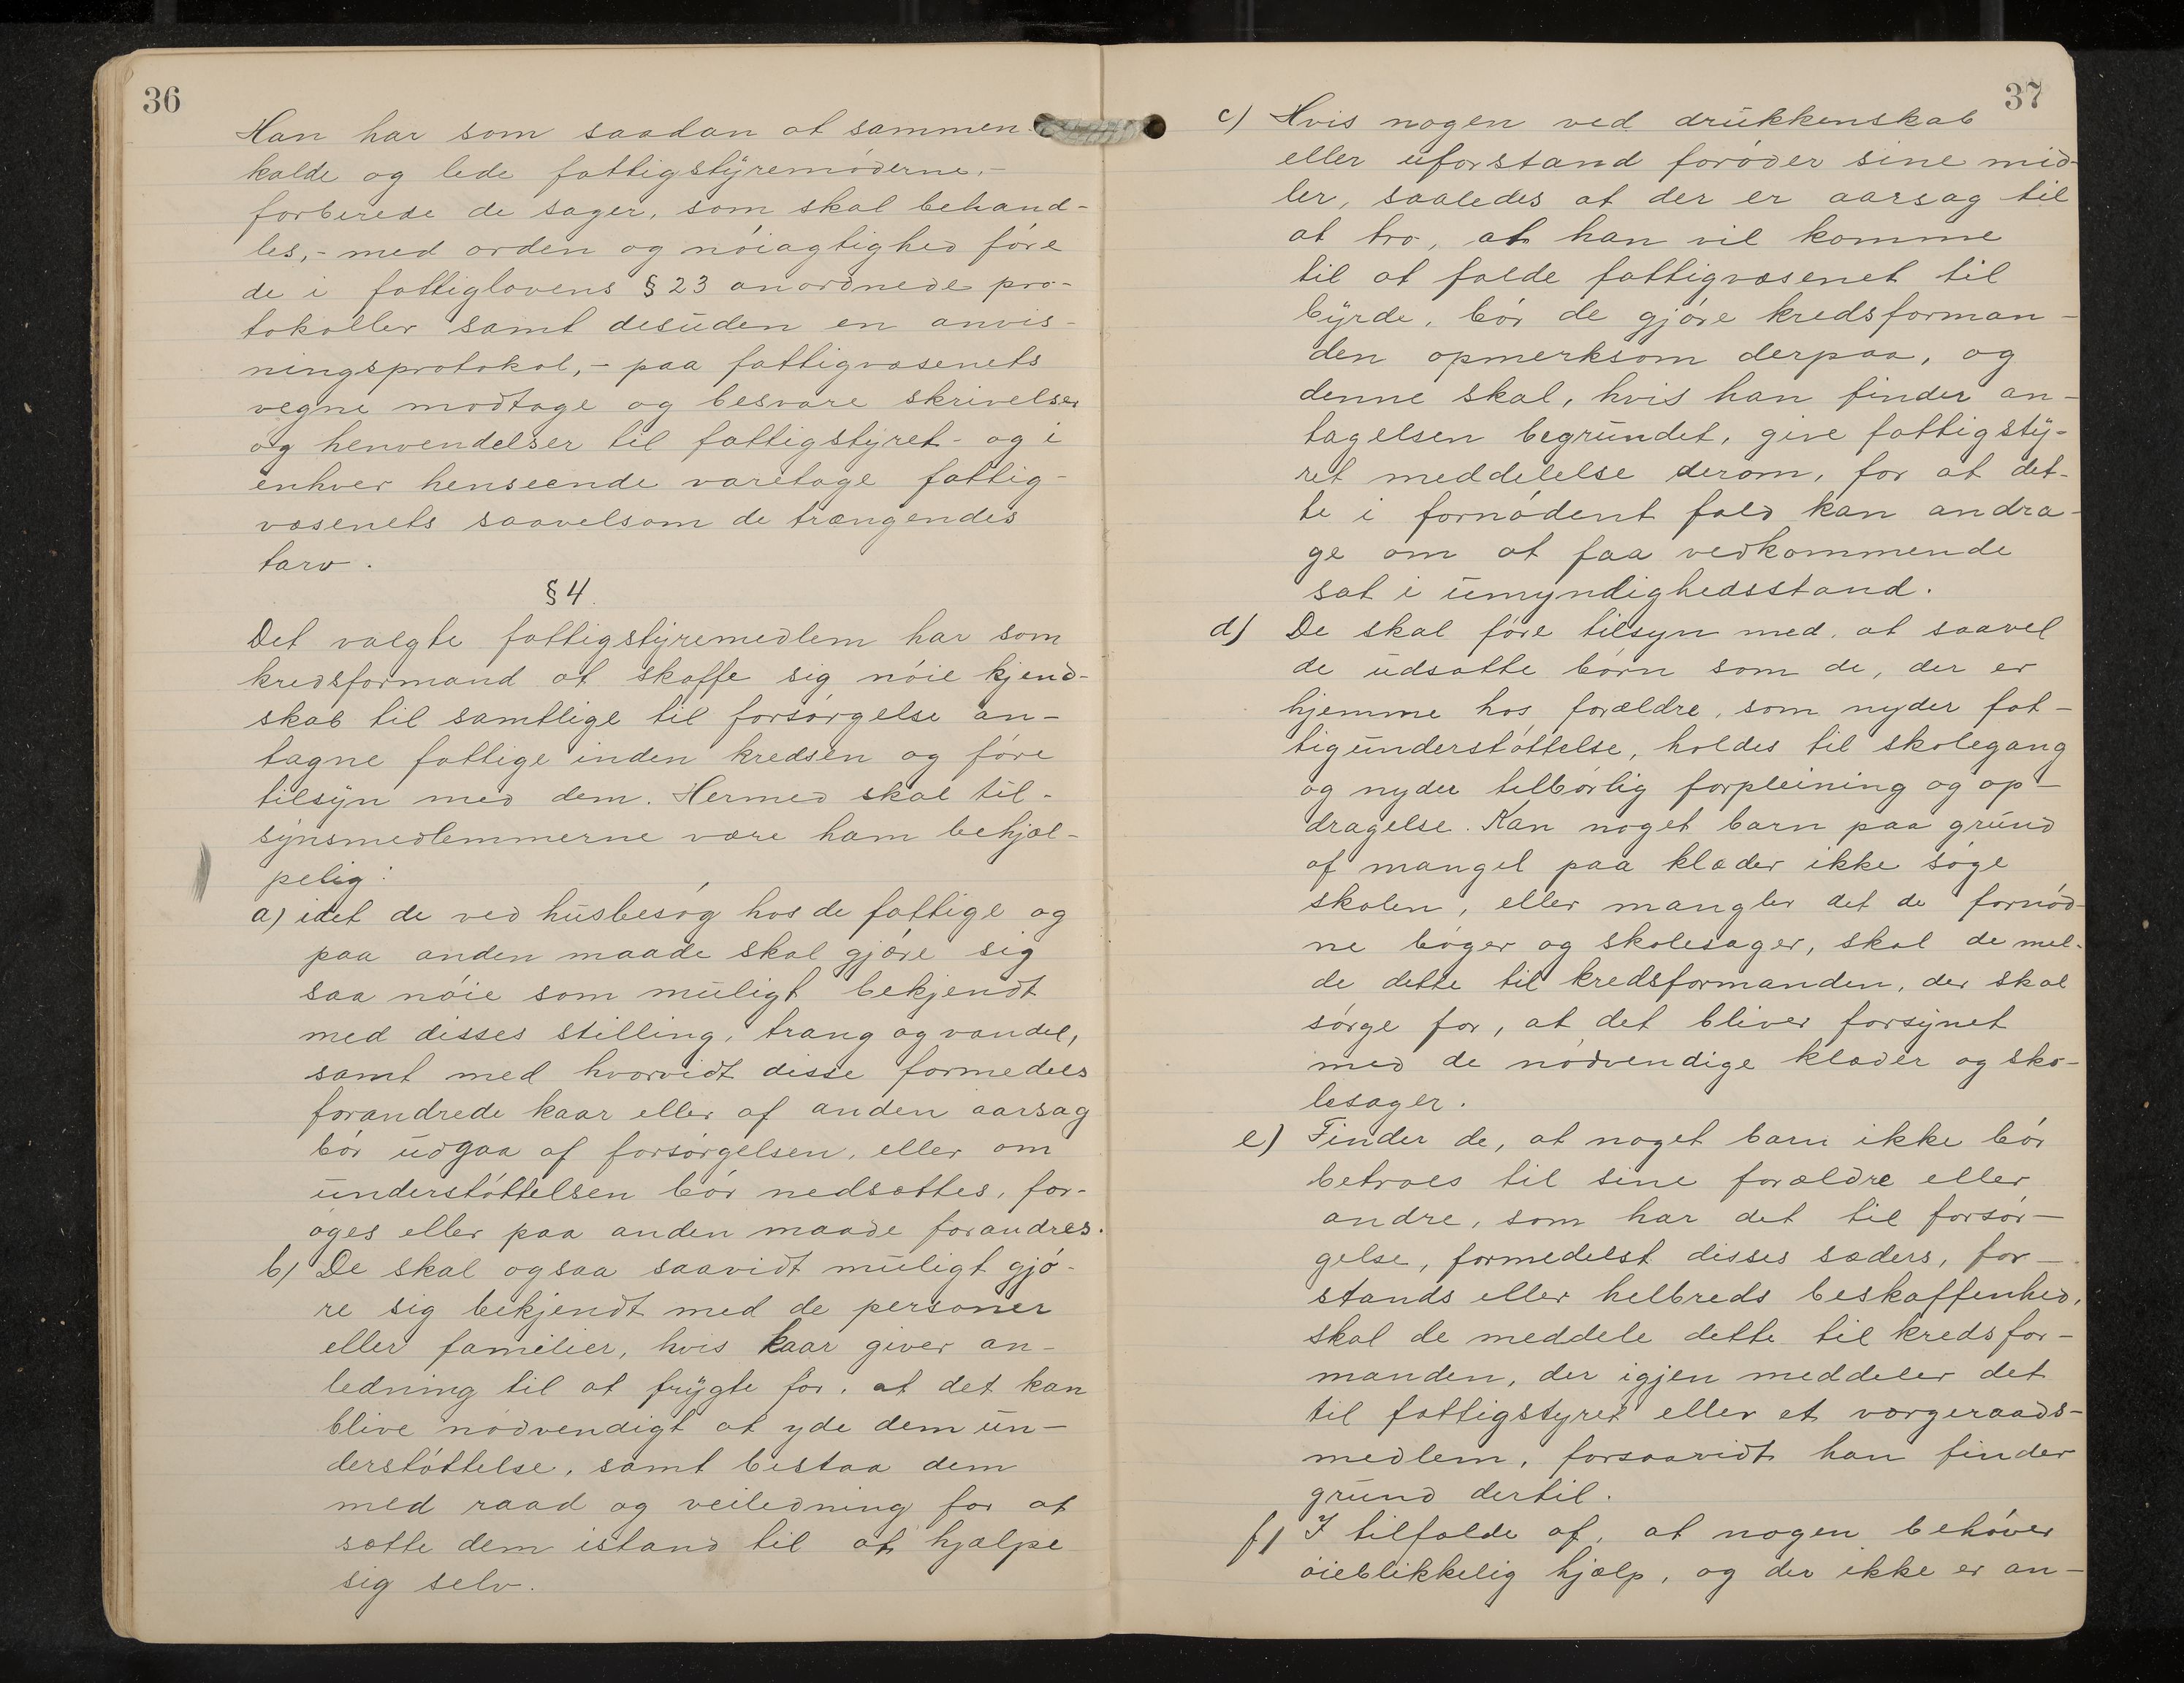 36
Han har som saadan at sammen-
kalde og lede fattigstyremøderne,-
forberede de sager, som skal behand-
les,- med orden og nøiagtighed føre
de i fattiglovens § 23 anordnede pro-
tokoller samt desuden en anvis-
ningsprotokol,- paa fattigvæsenets
vegne modtage og besvare skrivelser
og henvendelser til fattigstyret- og i
enhver henseende varetage fattig-
væsenets saavelsom de trængendes
tarv.
§ 4.
Det valgte fattigstyremedlem har som
kredsformand at skaffe sig nøie kjend-
skab til samtlige til forsørgelse an-
tagne fattige inden kredsen og føre
tilsyn med dem. Hermed skal til-
synsmedlemmerne være ham behjæl-
pelig:
a) idet de ved husbesøg hos de fattige og
paa anden maade skal gjøre sig
saa nøie som muligt bekjendt
med disses stilling, trang og vandel,
samt med hvorvidt disse formedels
forandrede kaar eller af anden aarsag
bør udgaa af forsørgelsen, eller om
understøttelsen bør nedsættes, for-
øges eller paa anden maade forandres.
b) De skal ogsaa saavidt muligt gjø-
re sig bekjendt med de personer
eller familier, hvis kaar giver an-
ledning til at frygte for, at det kan
blive nødvendigt at yde dem un-
derstøttelse, samt bistaa dem
med raad og veiledning for at
sætte dem istand til at hjælpe
sig selv.
37
c) Hvis nogen ved drukkenskab
eller uforstand forøder sine mid-
ler, saaledes at der er aarsag til
at tro, at han vil komme
til at falde fattigvæsenet til
byrde, bør de gjøre kredsforman-
den opmerksom derpaa, og
denne skal, hvis han finder an-
tagelsen begrundet, give fattigsty-
ret meddelelse derom, for at det-
te i fornødent fald kan andra-
ge om at faa vedkommende
sat i umyndighedsstand.
d) De skal føre tilsyn med, at saavel
de udsatte børn som de, der er
hjemme hos forældre, som nyder fat-
tigunderstøttelse, holdes til skolegang
og nyder tilbørlig forpleining og op-
dragelse. Kan noget barn paa grund
af mangel paa klæder ikke søge
skolen, eller mangler det de fornød-
ne bøger og skolesager, skal de mel-
de dette til kredsformanden, der skal
sørge for, at det bliver forsynet
med de nødvendige klæder og sko-
lesager.
e) Finder de, at noget barn ikke bør
betroes til sine forældre eller
andre, som har det til forsør-
gelse, formedelst disses sæders, for-
stands eller helbreds beskaffenhed,
skal de meddele dette til kredsfor-
manden, der igjen meddeler det
til fattigstyret eller et værgeraads-
medlem, forsaavidt han finder
grund dertil.
f) I tilfælde af, at nogen behøver
øieblikkelig hjælp, og der ikke er an-